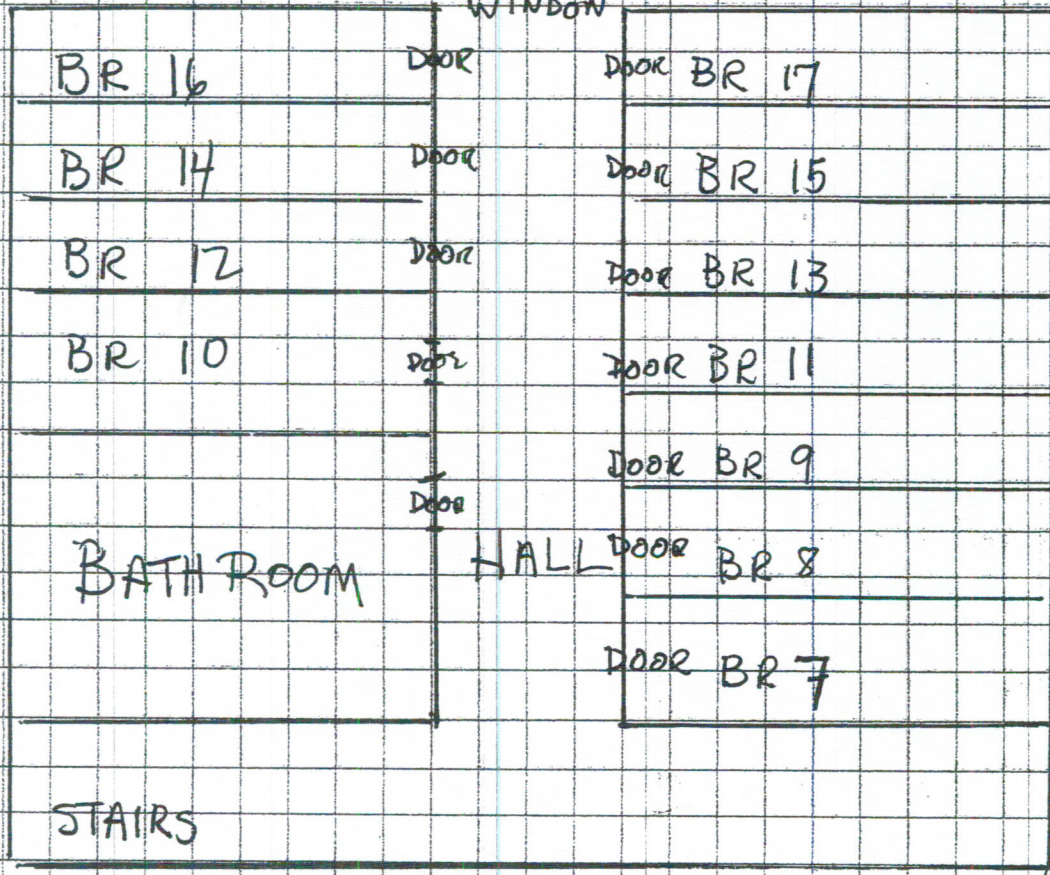 WINDOW
BR 16 DOOR DOOR BR 17
BR 14 DOOR DOOR BR 15
BR 12 DOOR DOOR BR 13
BR 10 DOOR DOOR BR 11
DOOR BR 9
DOOR
BATHROOM HALL DOOR BR 8
DOOR BR 7
STAIRS